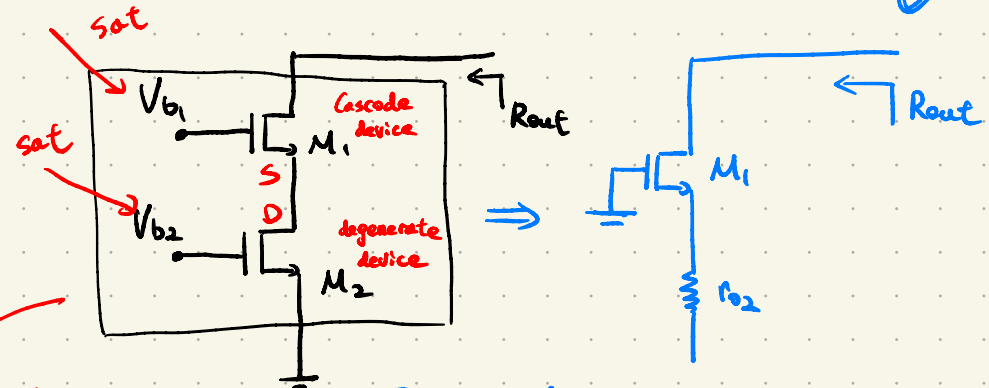 sat
Vb1
Cascode
device
M1
Rout
sat
S
D
Vb2
degenerate
device
M2
⇒
Rout
M1
ro2